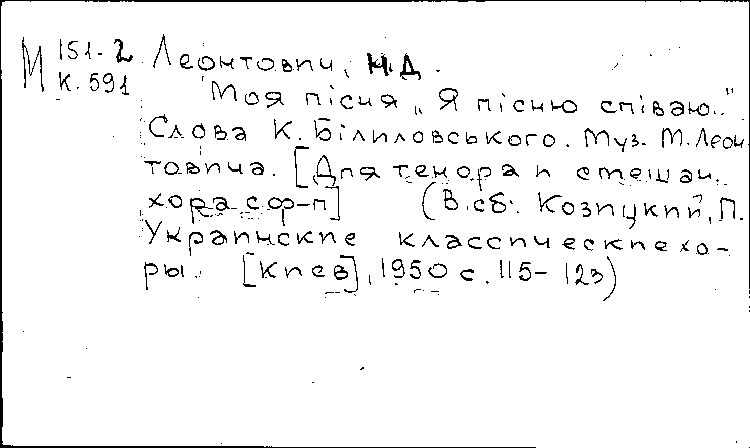 М 151-2 Леонтович, Н.Д.
К. 591
Моя пісня „Я пісню співаю.."
Слова К. Білиловського. Муз. М. Леон
товича. [Для тенора и смешан.
хора с ф-п] (В сб. Козицкий, П.
Украинские классические хо-
ры. [Киев], 1950 с. 115-123)